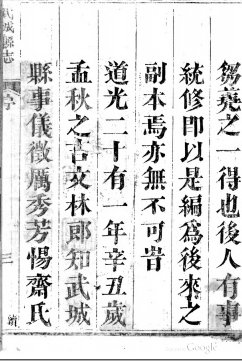 芻蕘之一得也後人有事
統修即以是編爲後來之
副本焉亦無不可旹
道光二十有一年辛丑歲
孟秋之吉文林郎知武城
縣事儀徵厲秀芳惕齋氏
武城縣志
序
三
續
Google